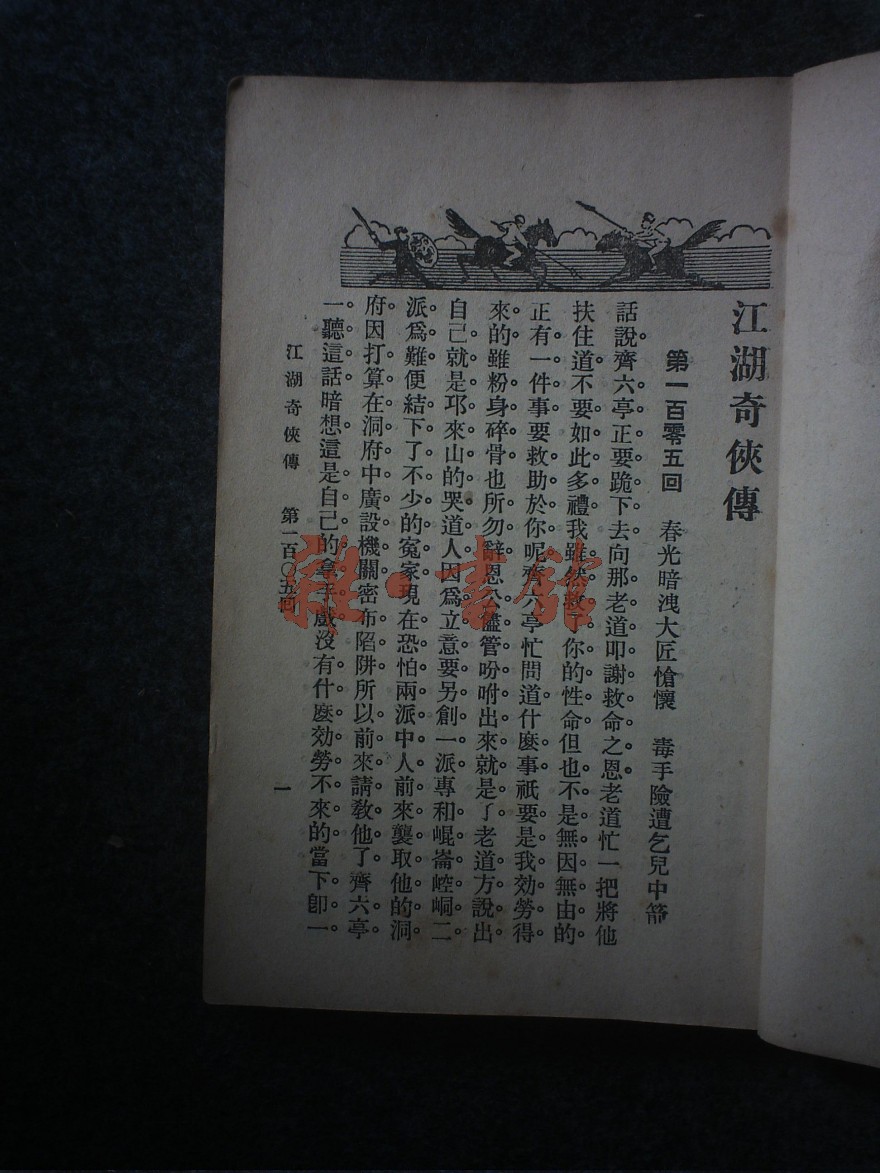 江湖奇俠傳
第一百零五回　春光暗洩大匠愴懷　毒手險遭乞兒中箭
話說齊六亭正要跪下去向那老道叩謝救命之恩老道忙一把將他
扶住道不要如此多禮我雖然救了你的性命但也不是無因無由的
正有一件事要救助於你呢齊六亭忙問道什麽事祇要是我効勞得
來的雖粉身碎骨也所勿辭恩公儘管吩咐出來就是了老道方說出
自己就是邛來山的哭道人因爲立意要另創一派專和崐崙崆峒二
派爲難便結下了不少的寃家現在恐怕兩派中人前來襲取他的洞
府因打算在洞府中廣設機關密布陷阱所以前來請敎他了齊六亭
一聽這話暗想這是自己的拿手戲沒有什麽効勞不來的當下卽一
江湖奇俠傳　第一百〇五回　一
雜·書館